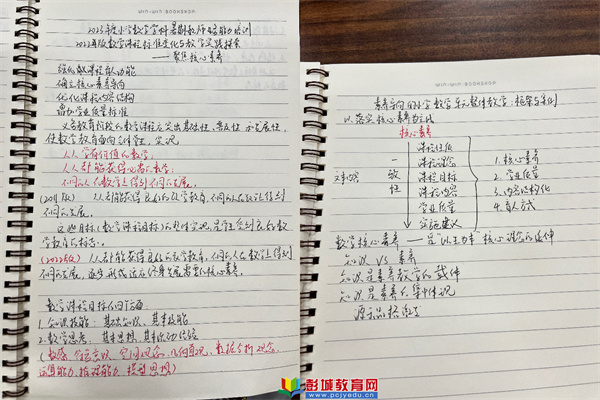 2023年度小学数学学科暑期教师研修能力培训
2022年版数学课程标准变化与教学实践探索
——聚焦核心素养
强化课程育人功能
确立核心素养导向
优化课程内容结构
增加学业质量标准
义务教育阶段的数学课程应突出基础性、普及性和发展性,
使数学教育面向全体学生,实现:
人人学有价值的数学;
人人都能获得必需的数学;
不同的人在数学上得到不同的发展。
(2011版) 人人都能获得良好的数学教育,不同的人在数学上得到
不同的发展。
(2022版) 人人都能获得良好的数学教育,不同的人在数学上得到
不同的发展,逐步形成适应终身发展需要的核心素养。
数学课程目标的四方面
1.知识技能:基础知识、基本技能
2.数学思考:基本思想、基本活动经验
(数感、符号意识、空间观念、几何直观、数据分析观念、
运算能力、推理能力、模型思想)
素养导向的小学数学单元整体教学:框架与案例
以落实核心素养为主线
核心素养
课程性质
课程理念
课程目标
课程内容
学业质量
实施建议
一致性
1.核心素养
2.学业质量
3.内容结构化
4.育人方式
数学核心素养——是"以人为本"核心理念的延伸
知识 VS 素养
知识是素养教学的载体
彭城教育网
www.pcjyedu.cn